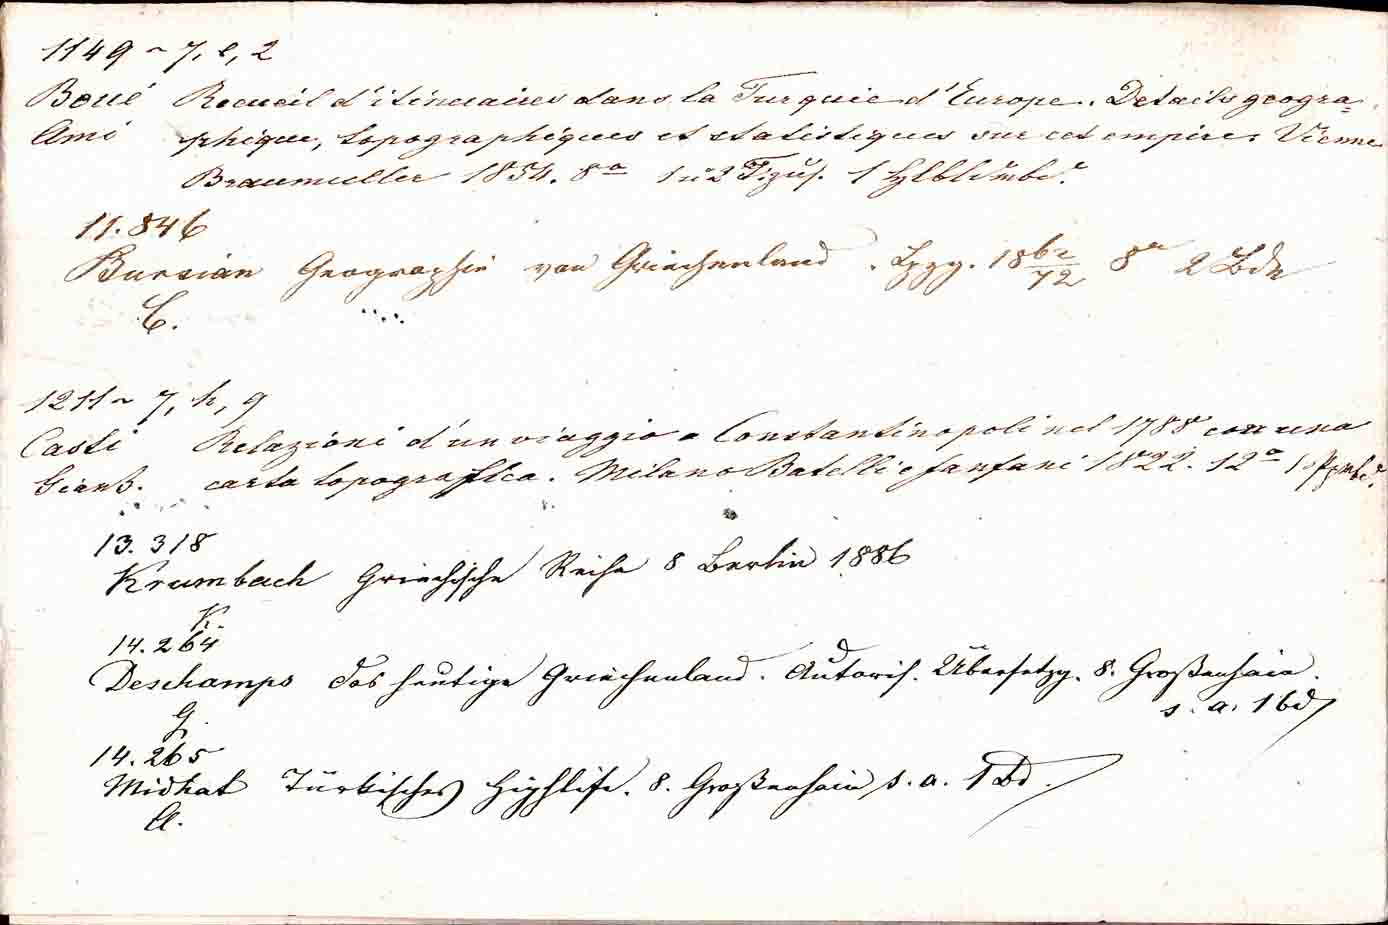 1149 ~ 7, e, 2
Boué Recueil d'itineraires dans la Turquie d'Europe. Details geogra=
Ami phique, topographiques et statistiques sur cet empire. Vienne
Braumuller 1854. 8o 1 u 2 1 Hlblwdbd.
11.846
Bursian Geographie von Griechenland. Lpzg. 1862/72 8o 2 Bde
C.
1211 ~ 7, h, 9
Casti Relazioni d'un viaggio a Constantinopoli nel 1788 con una
Gianb. carta topografica. Milano Batelli e fanfani 1822. 12o 1
13.318
Krumbach Griechische Reise 8 Berlin 1886
K.
14.264
Deschamps Das heutige Griechenland. Autoris. Übersetzg. 8. Großenhain.
G. s. a. 1 bd
14.265
Midhat Türkisches Highlife. 8. Großenhain s. a. 1 Bd.
A.